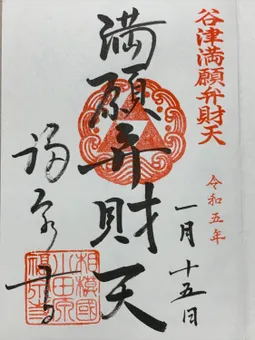 谷津満願弁財天
令和五年
一月十五日
満願弁財天
福泉寺
相模國
小田原
福泉寺